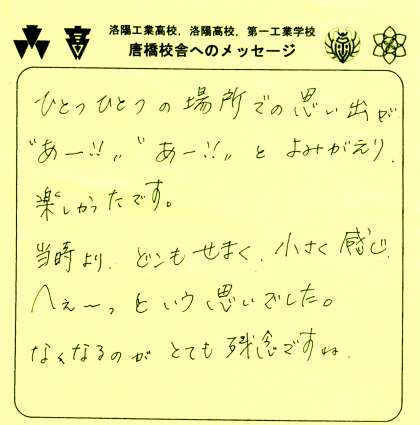 洛陽工業高校，洛陽高校，第一工業学校
唐橋校舎へのメッセージ
ひとつひとつの場所での思い出が
"あー!!„ "あー!!„ と よみがえり、
楽しかったです。
当時より、どこもせまく、小さく感じ、
へぇ〜っ という思いでした。
なくなるのが とても残念ですね。